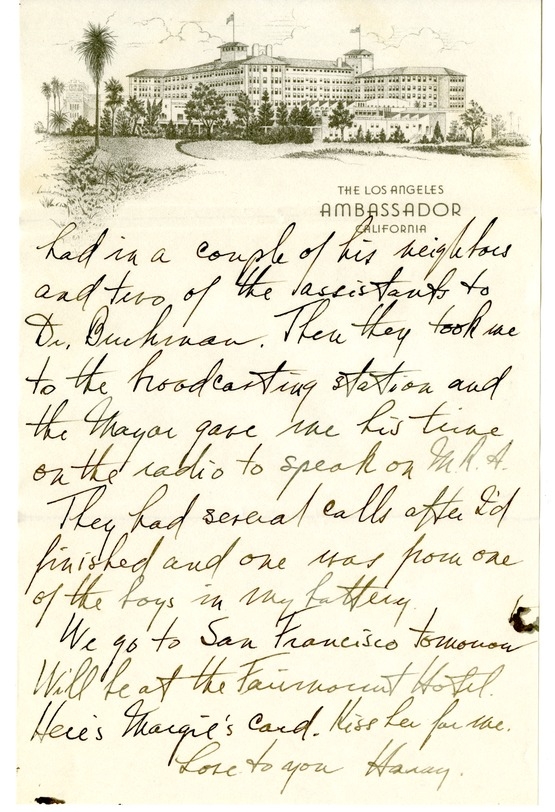 THE LOS ANGELES
AMBASSADOR
CALIFORNIA
had in a couple of his neighbors
and two of the assistants to
Dr. Buchman. Then they took me
to the broadcasting station and
the Mayor gave me his time
on the radio to speak on M.R.A.
They had several calls after I'd
finished and one was from one
of the boys in my battery.
We go to San Francisco tomorrow
Will be at the Fairmount Hotel.
Here's Margie's card. Kiss her for me.
Love to you Harry.